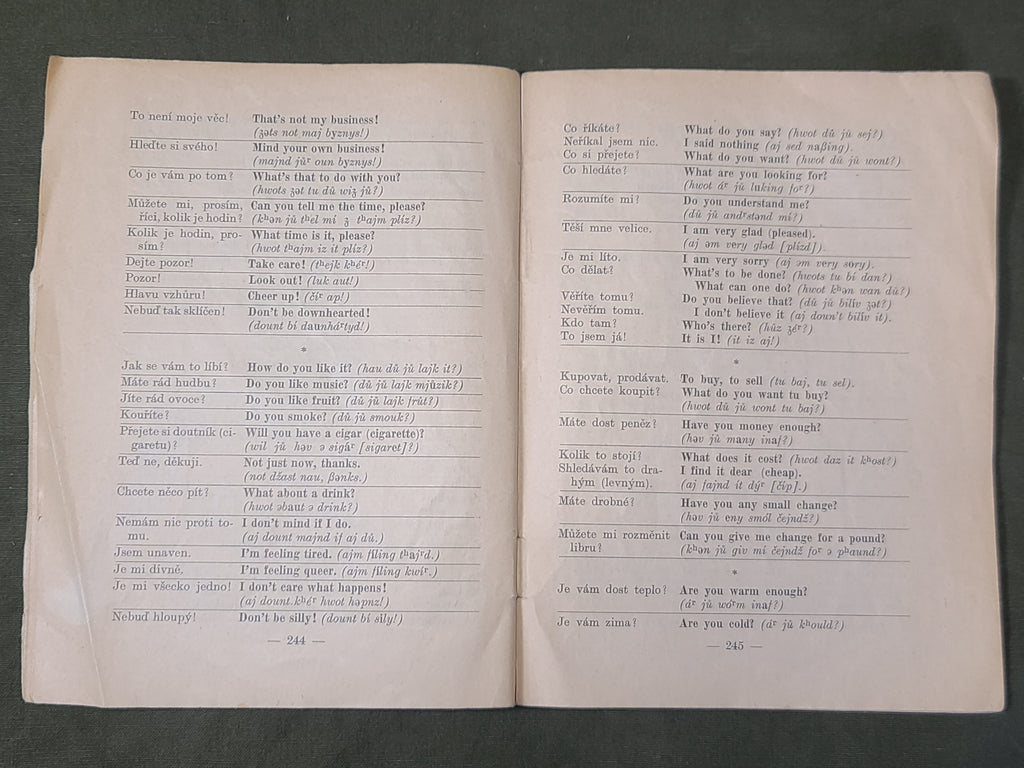 To není moje věc! That's not my business!
(ʒəts not maj byznys!)
Hleďte si svého! Mind your own business!
(majnd júʳ oun byznys!)
Co je vám po tom? What's that to do with you?
(hwots ʒət tu dú wiʒ jú?)
Můžete mi, prosím, Can you tell me the time, please?
říci, kolik je hodin? (kʰən jú tʰel mí ʒ tʰajm plíz?)
Kolik je hodin, pro- What time is it, please?
sím? (hwot tʰajm iz it plíz?)
Dejte pozor! Take care! (tʰejk kʰéʳ!)
Pozor! Look out! (luk aut!)
Hlavu vzhůru! Cheer up! (číʳ ap!)
Nebuď tak sklíčen! Don't be downhearted!
(dount bí daunháʳtyd!)
*
Jak se vám to líbí? How do you like it? (hau dú jú lajk it?)
Máte rád hudbu? Do you like music? (dú jú lajk mjúzik?)
Jíte rád ovoce? Do you like fruit? (dú jú lajk frút?)
Kouříte? Do you smoke? (dú jú smouk?)
Přejete si doutník (ci- Will you have a cigar (cigarette)?
garetu)? (wil jú həv ə sigáʳ [sigaret]?)
Teď ne, děkuji. Not just now, thanks.
(not džast nau, βənks.)
Chcete něco pít? What about a drink?
(hwot əbaut ə drink?)
Nemám nic proti to- I don't mind if I do.
mu. (aj dount majnd if aj dú.)
Jsem unaven. I'm feeling tired. (ajm fíling tʰajʳd.)
Je mi divně. I'm feeling queer. (ajm fíling kwíʳ.)
Je mi všecko jedno! I don't care what happens!
(aj dount kʰéʳ hwot həpnz!)
Nebuď hloupý! Don't be silly! (dount bí sily!)
— 244 —
Co říkáte? What do you say? (hwot dú jú sej?)
Neříkal jsem nic. I said nothing (aj sed naβing).
Co si přejete? What do you want? (hwot dú jú wont?)
Co hledáte? What are you looking for?
(hwot áʳ jú luking foʳ?)
Rozumíte mi? Do you understand me?
(dú jú andʳstənd mí?)
Těší mne velice. I am very glad (pleased).
(aj əm very gləd [plízd]).
Je mi líto. I am very sorry (aj əm very sory).
Co dělat? What's to be done? (hwots tu bí dan?)
What can one do? (hwot kʰən wan dú?)
Věříte tomu? Do you believe that? (dú jú bilív ʒət?)
Nevěřím tomu. I don't believe it (aj doun't bilív it).
Kdo tam? Who's there? (húz ʒéʳ?)
To jsem já! It is I! (it iz aj!)
*
Kupovat, prodávat. To buy, to sell (tu baj, tu sel).
Co chcete koupit? What do you want tu buy?
(hwot dú jú wont tu baj?)
Máte dost peněz? Have you money enough?
(həv jú many inaf?)
Kolik to stojí? What does it cost? (hwot daz it kʰost?)
Shledávám to dra- I find it dear (cheap).
hým (levným). (aj fajnd it dýʳ [číp].)
Máte drobné? Have you any small change?
(həv jú eny smól čejndž?)
Můžete mi rozměnit Can you give me change for a pound?
libru? (kʰən jú giv mí čejndž foʳ ə pʰaund?)
*
Je vám dost teplo? Are you warm enough?
(áʳ jú wóʳm inaf?)
Je vám zima? Are you cold? (áʳ jú kʰould?)
— 245 —